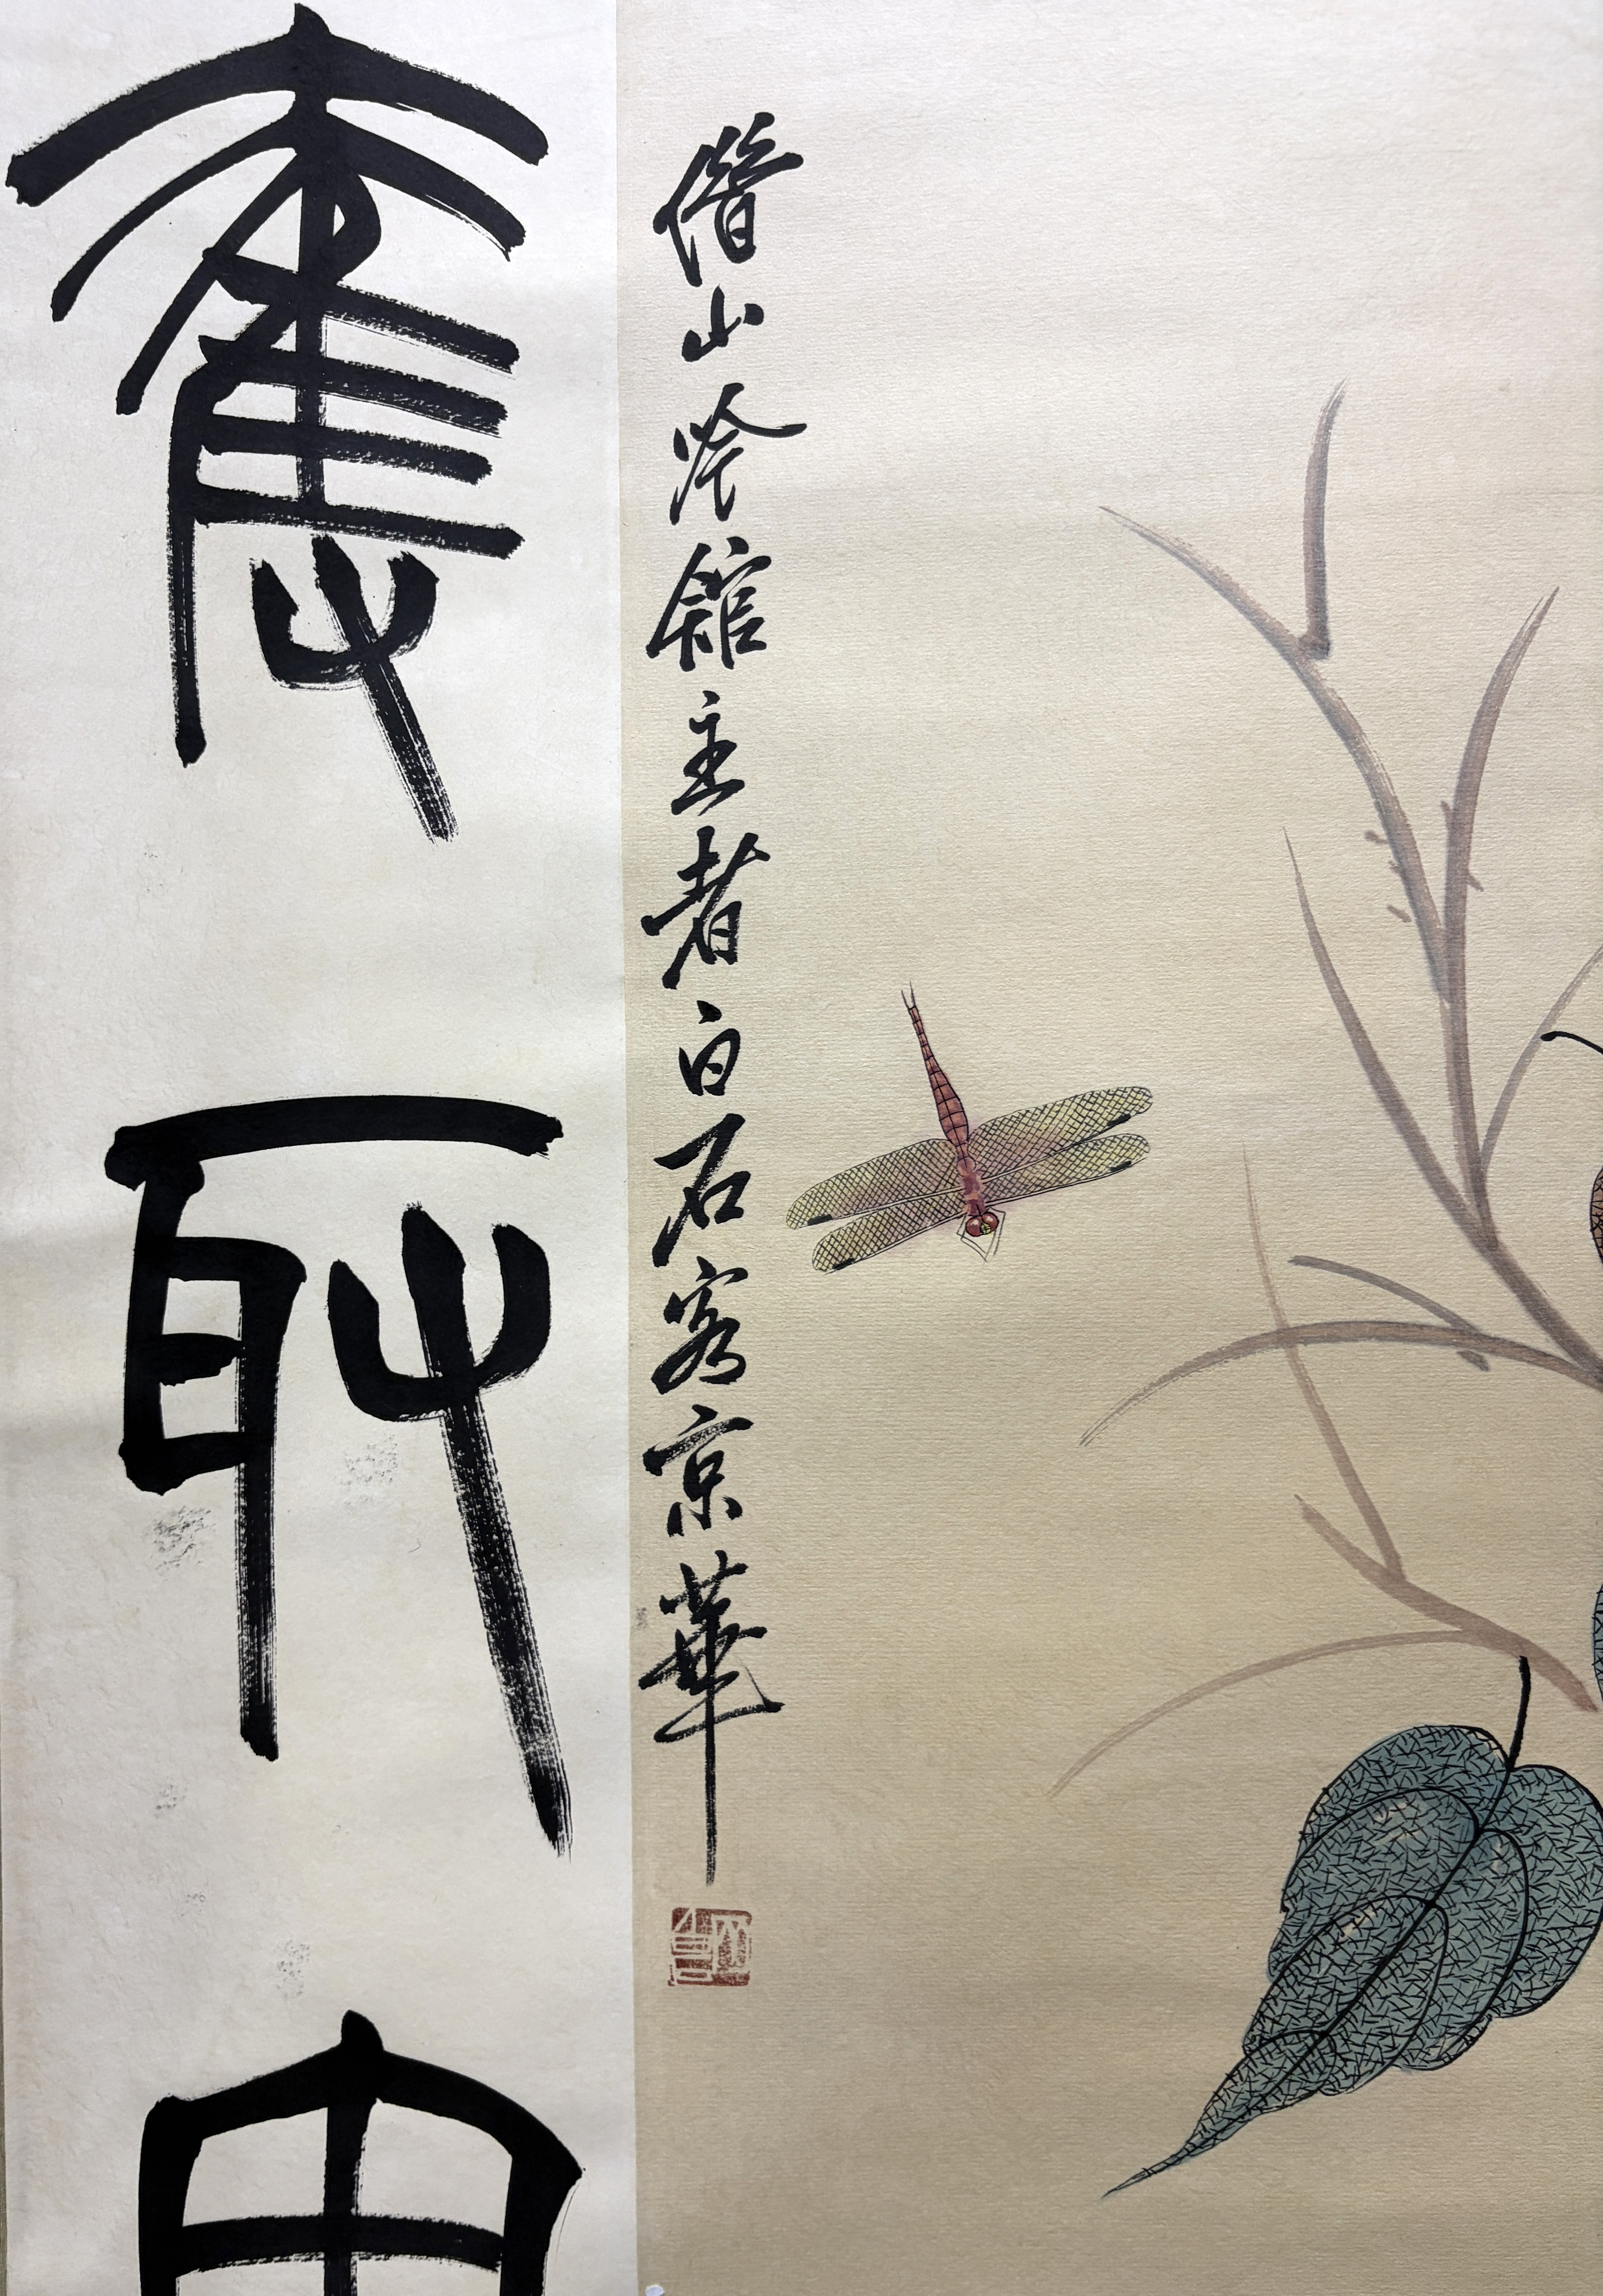 借山吟館主者白石客京華
奪
取